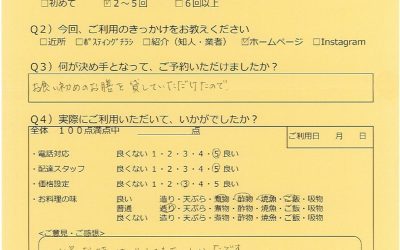 □初めて ☑2～5回 □6回以上
Q２）今回、ご利用のきっかけをお教えください
□近所 □ﾎﾟｽﾃｨﾝｸﾞﾁﾗｼ □紹介（知人・業者） ☑ホームページ □Instagram
Q３）何が決め手となって、ご予約いただけましたか？
お食い初めのお膳を貸していただけたので
Q４）実際にご利用いただいて、いかがでしたか？
全体 １００点満点中 点
ご利用日 月 日
・電話対応 良くない １・２・３・４・５ 良い
・配達スタッフ 良くない １・２・３・４・５ 良い
・価格設定 良くない １・２・３・４・５ 良い
・お料理の味 良い 造り・天ぷら・煮物・酢物・焼魚・ご飯・吸物
普通 造り・天ぷら・煮物・酢物・焼魚・ご飯・吸物
良くない 造り・天ぷら・煮物・酢物・焼魚・ご飯・吸物
＜ご意見・ご感想＞